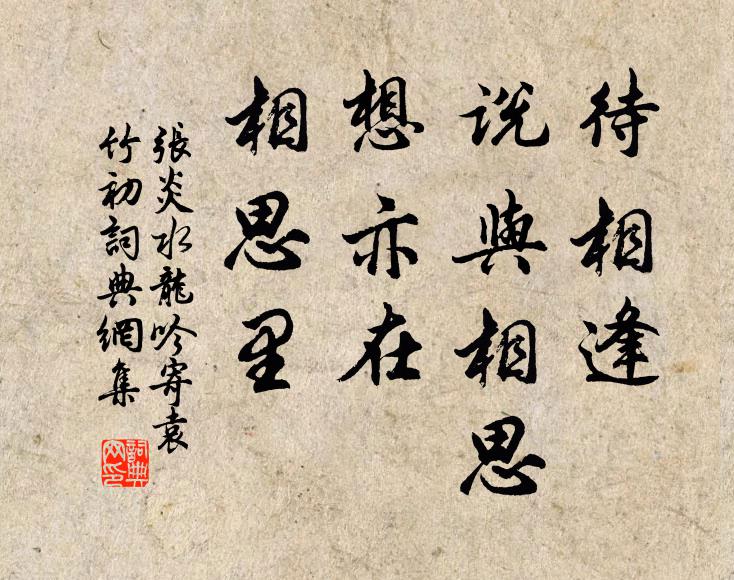 待相逢
說與相思
想亦在
相思里
張炎水龍吟寄袁
竹初詞典網集
詞典
网印